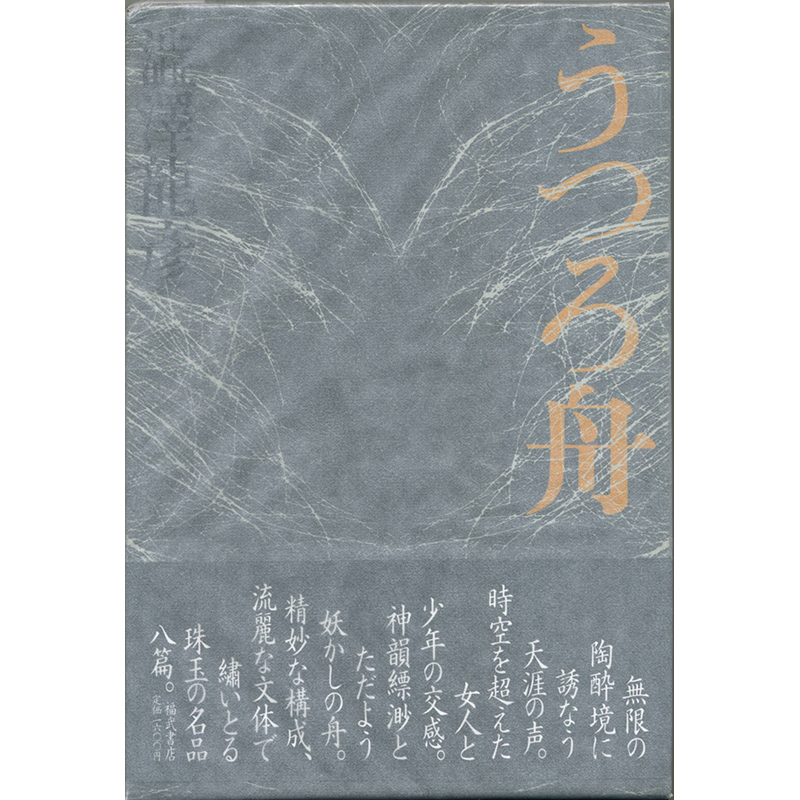 うつろ舟
澁澤龍彦
無限の
陶酔境に
誘なう
天涯の声。
時空を超えた
女人と
少年の交感。
神韻縹渺と
ただよう
妖かしの舟。
精妙な構成、
流麗な文体で
繡いとる
珠玉の名品
八篇。
福武書店
定価一六〇〇円